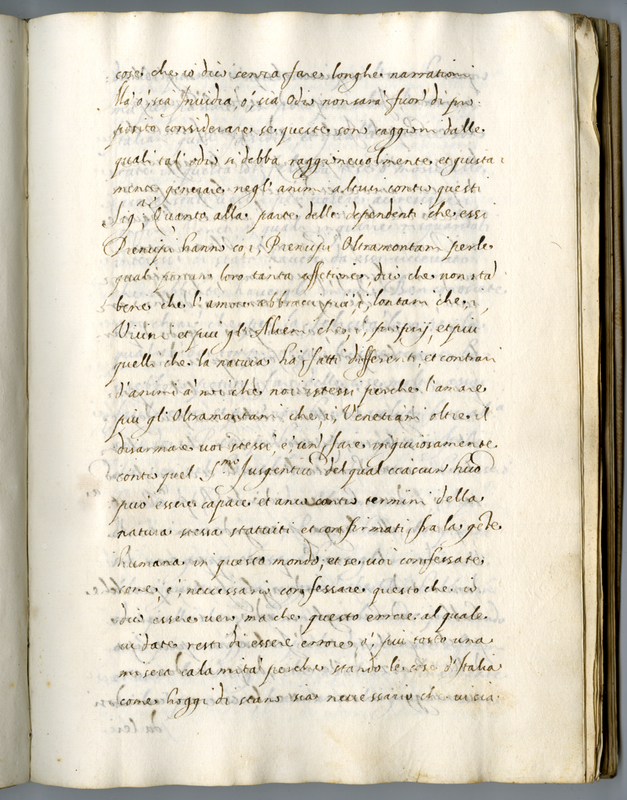 cose che io dico senza fare longhe narrationi
Ma ó, sia Invidia, ó, sia Odio non sarà fuor di pro=
posito considerare se queste son caggioni dalle
quali tal' odio si debba raggionevolmente et giusta
mente generare negl' animi alcuni contro questi
Quanto alla parte delli dependenti che essi
Prencipi hanno coi Prencipi Oltramontani per le
quali portano loro tanta affettione, dico che non sta
bene che l'amore abbracci più i, lontani che, i,
Vicini et più gl' Alieni che, i, proprij, et più
quelli che la natura ha fatti differenti, et contrari
d'animi a noi che noi istessi perche l'amare
più gl' Oltramontani che, i, Venetiani oltre il
disarmare voi stessi, é, un fare ingiuriosamente
contro quel del qual ciascun huo
può essere capace et anco contro termini della
natura stessa statuiti et confirmati, fra la gente
humana in questo mondo, et se voi confessate
bene, é, necessario confessare questo che io
dico essere vero, ma che questo errore al quale
vi date resti di essere errore é, più tosto una
misera calamità perche stando le cose d'Italia
come hoggi di stano sia necessario che vi sia